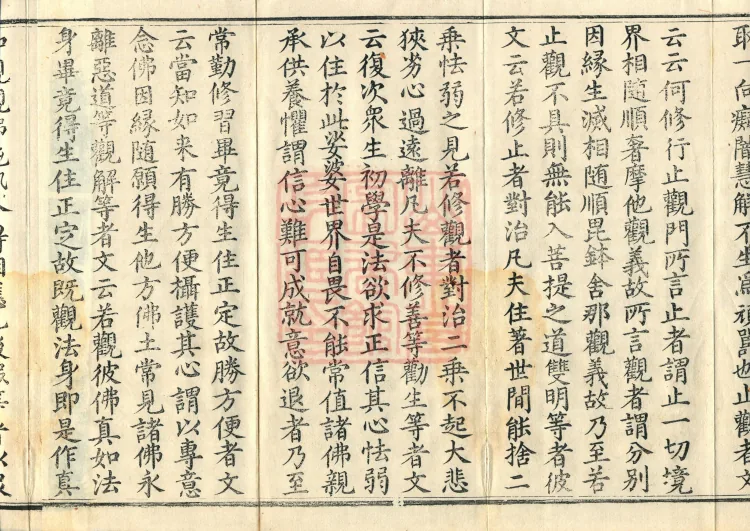 一向癡闇慧解不生為頑嚚也止觀者文
云云何修行止觀門所言止者謂止一切境
界相隨順奢摩他觀義故所言觀者謂分別
因縁生滅相隨順毘鉢舍那觀義故乃至若
止觀不具則無能入菩提之道雙明等者彼
文云若修止者對治凡夫住著世間能捨二
乗怯弱之見若修觀者對治二乗不起大悲
狹劣心過遠離凡夫不修善等勸生等者文
云復次衆生初學是法欲求正信其心怯弱
以住於此娑婆世界自畏不能常值諸佛親
承供養懼謂信心難可成就意欲退者乃至
常勤修習畢竟得生住正定故勝方便者文
云當知如来有勝方便攝護其心謂以專意
念佛因緣隨願得生他方佛土常見諸佛永
離惡道等觀解等者文云若觀彼佛真如法
身畢竟得生住正定故既觀法身即是作真